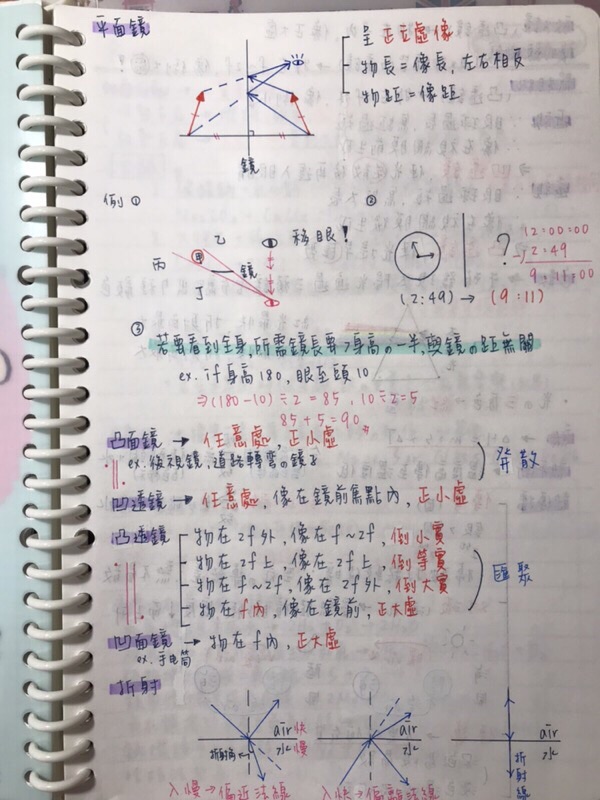 平面鏡
呈正立虛像
物長=像長,左右相反
物距=像距
鏡
例①
②
乙
移眼!
甲
丙
鏡
丁
?
12:00:00
-) 2:49
9:11:00
(2:49) → (9:11)
③
若要看到全身,所需鏡長要>身高の一半,與鏡の距無關
ex. if 身高180,眼至頭10
⇒(180-10)÷2=85,10÷2=5
85+5=90#
凸面鏡 → 任意處,正小虛
ex.後視鏡,道路轉彎の鏡子
發散
凹透鏡 → 任意處,像在鏡前焦點內,正小虛
凸透鏡
物在2f外,像在f~2f,倒小實
物在2f上,像在2f上,倒等實
物在f~2f,像在2f外,倒大實
物在f內,像在鏡前,正大虛
匯聚
凹面鏡 → 物在f內,正大虛
ex.手电筒
折射
air 快
水 慢
折射角
air
水
air
水
折射線
入慢→偏近法線
入快→偏離法線